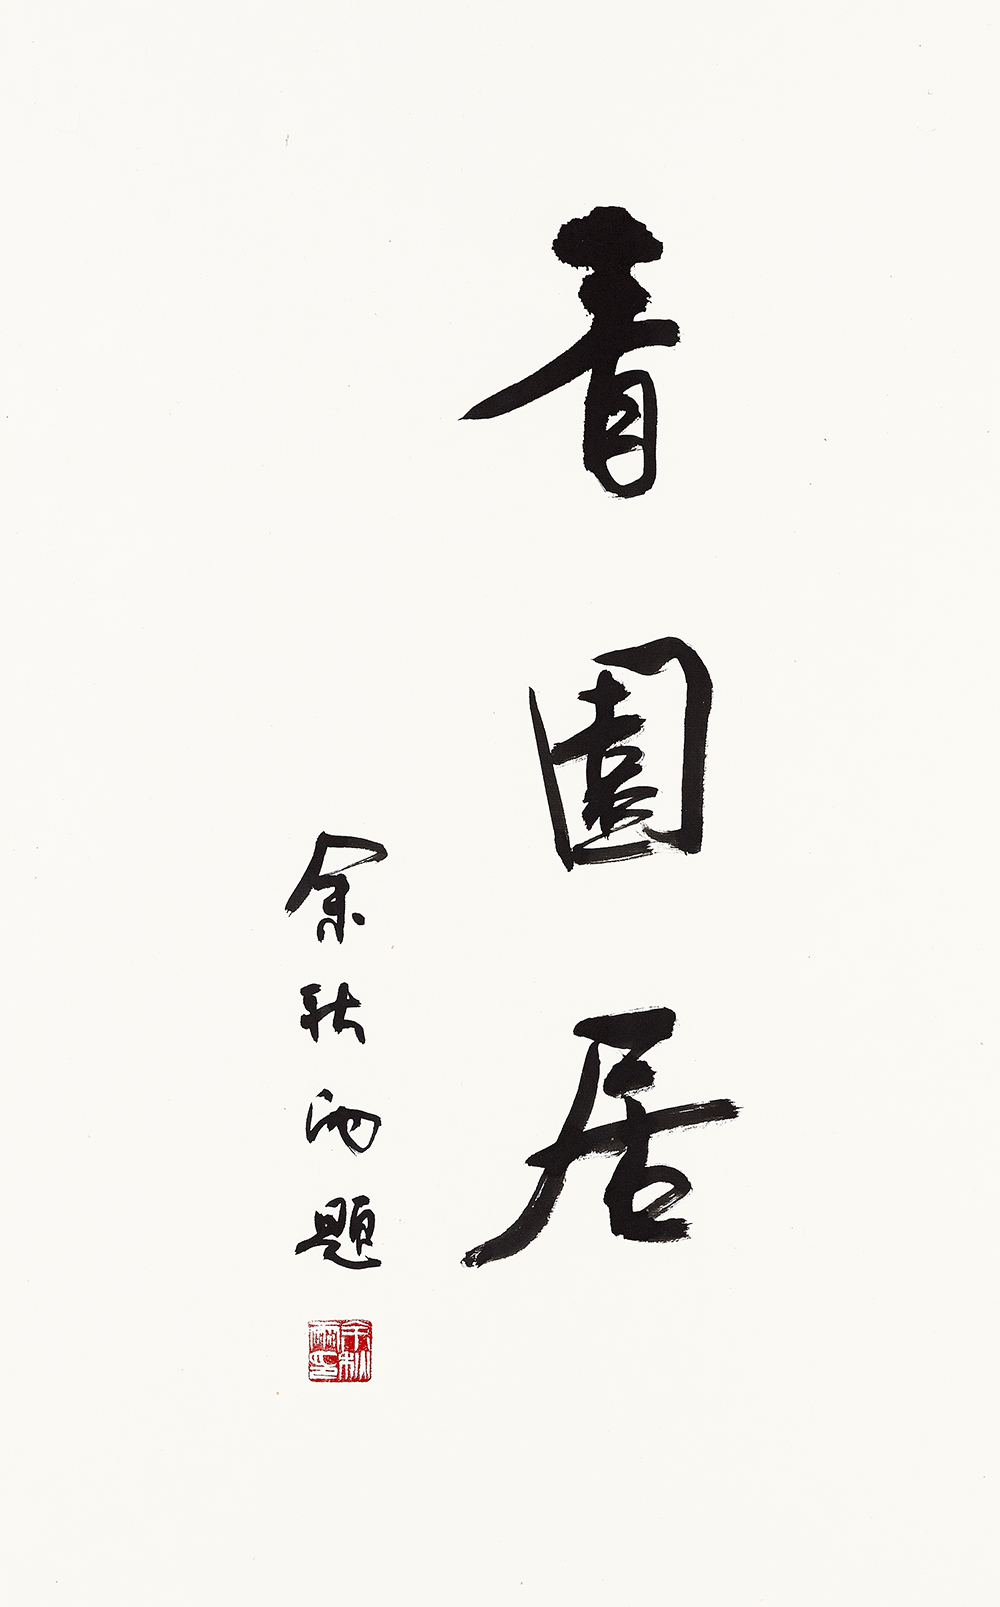 青園居
余秋雨題
余秋雨印